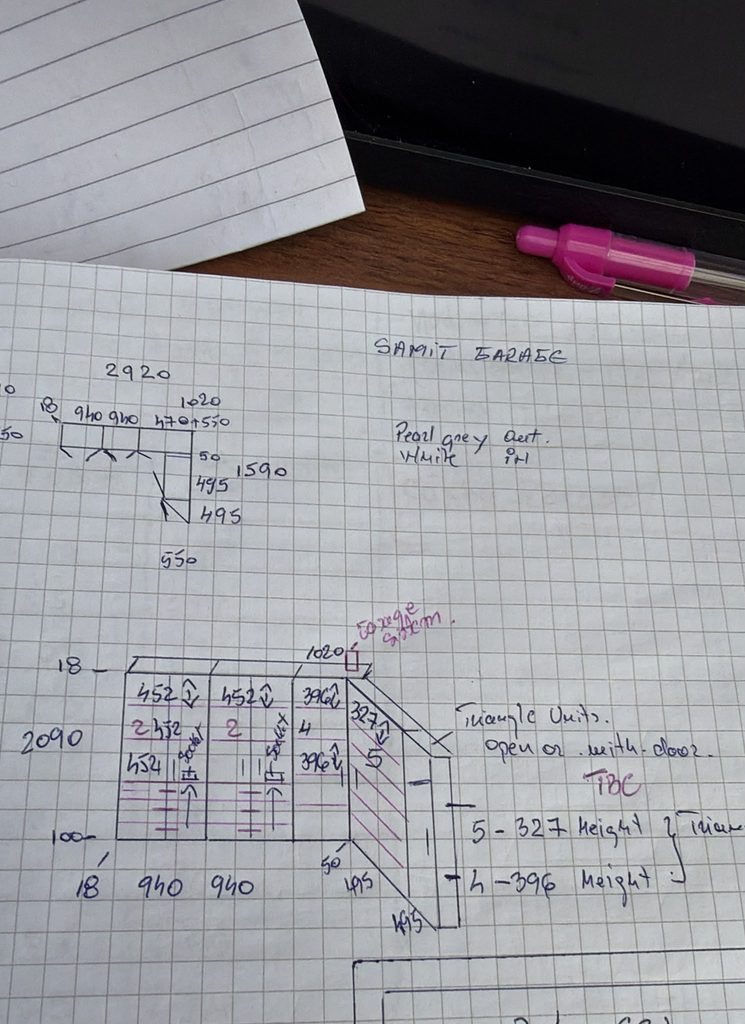 SAMIT GARAGE
2920
1020
18 940 940 470+550
50
1590
495
495
550
50
Pearl grey out.
White in
Garage
sistem.
1020
18
452 452 396
327
2 452 2 4
5
452 396
2090
100
50
18 940 940
495
495
Triangle Units.
open or with door.
TBC
5 - 327 Height
4 - 396 Height